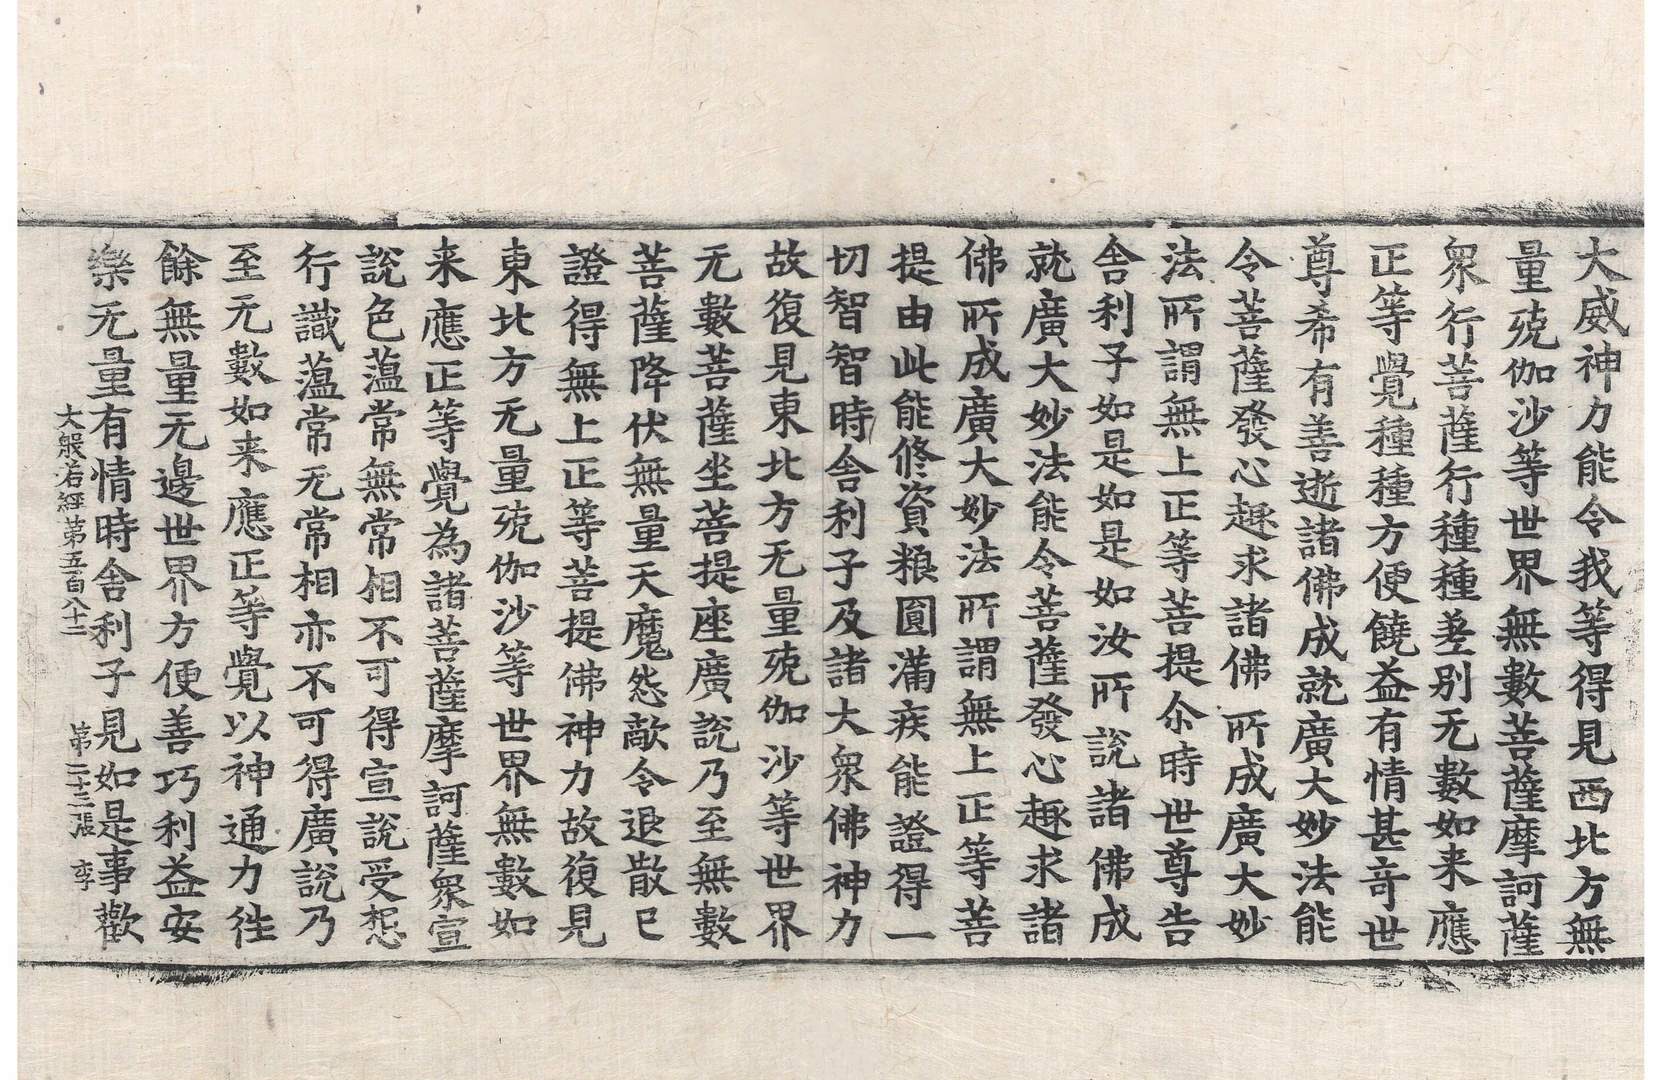 大威神力能令我等得見西北方無
量殑伽沙等世界無數菩薩摩訶薩
眾行菩薩行種種差別无數如来應
正等覺種種方便饒益有情甚奇世
尊希有善逝諸佛成就廣大妙法能
令菩薩發心趣求諸佛所成廣大妙
法所謂無上正等菩提尒時世尊告
舍利子如是如是如汝所說諸佛成
就廣大妙法能令菩薩發心趣求諸
佛所成廣大妙法所謂無上正等菩
提由此能修資粮圓滿疾能證得一
切智智時舍利子及諸大眾佛神力
故復見東北方无量殑伽沙等世界
无數菩薩坐菩提座廣說乃至無數
菩薩降伏無量天魔怨敵令退散已
證得無上正等菩提佛神力故復見
東北方无量殑伽沙等世界無數如
来應正等覺為諸菩薩摩訶薩眾宣
說色蘊常無常相不可得宣說受想
行識蘊常无常相亦不可得廣說乃
至无數如来應正等覺以神通力往
餘無量无邊世界方便善巧利益安
樂无量有情時舍利子見如是事歡
大般若經第五百八十二 第二十三張 李